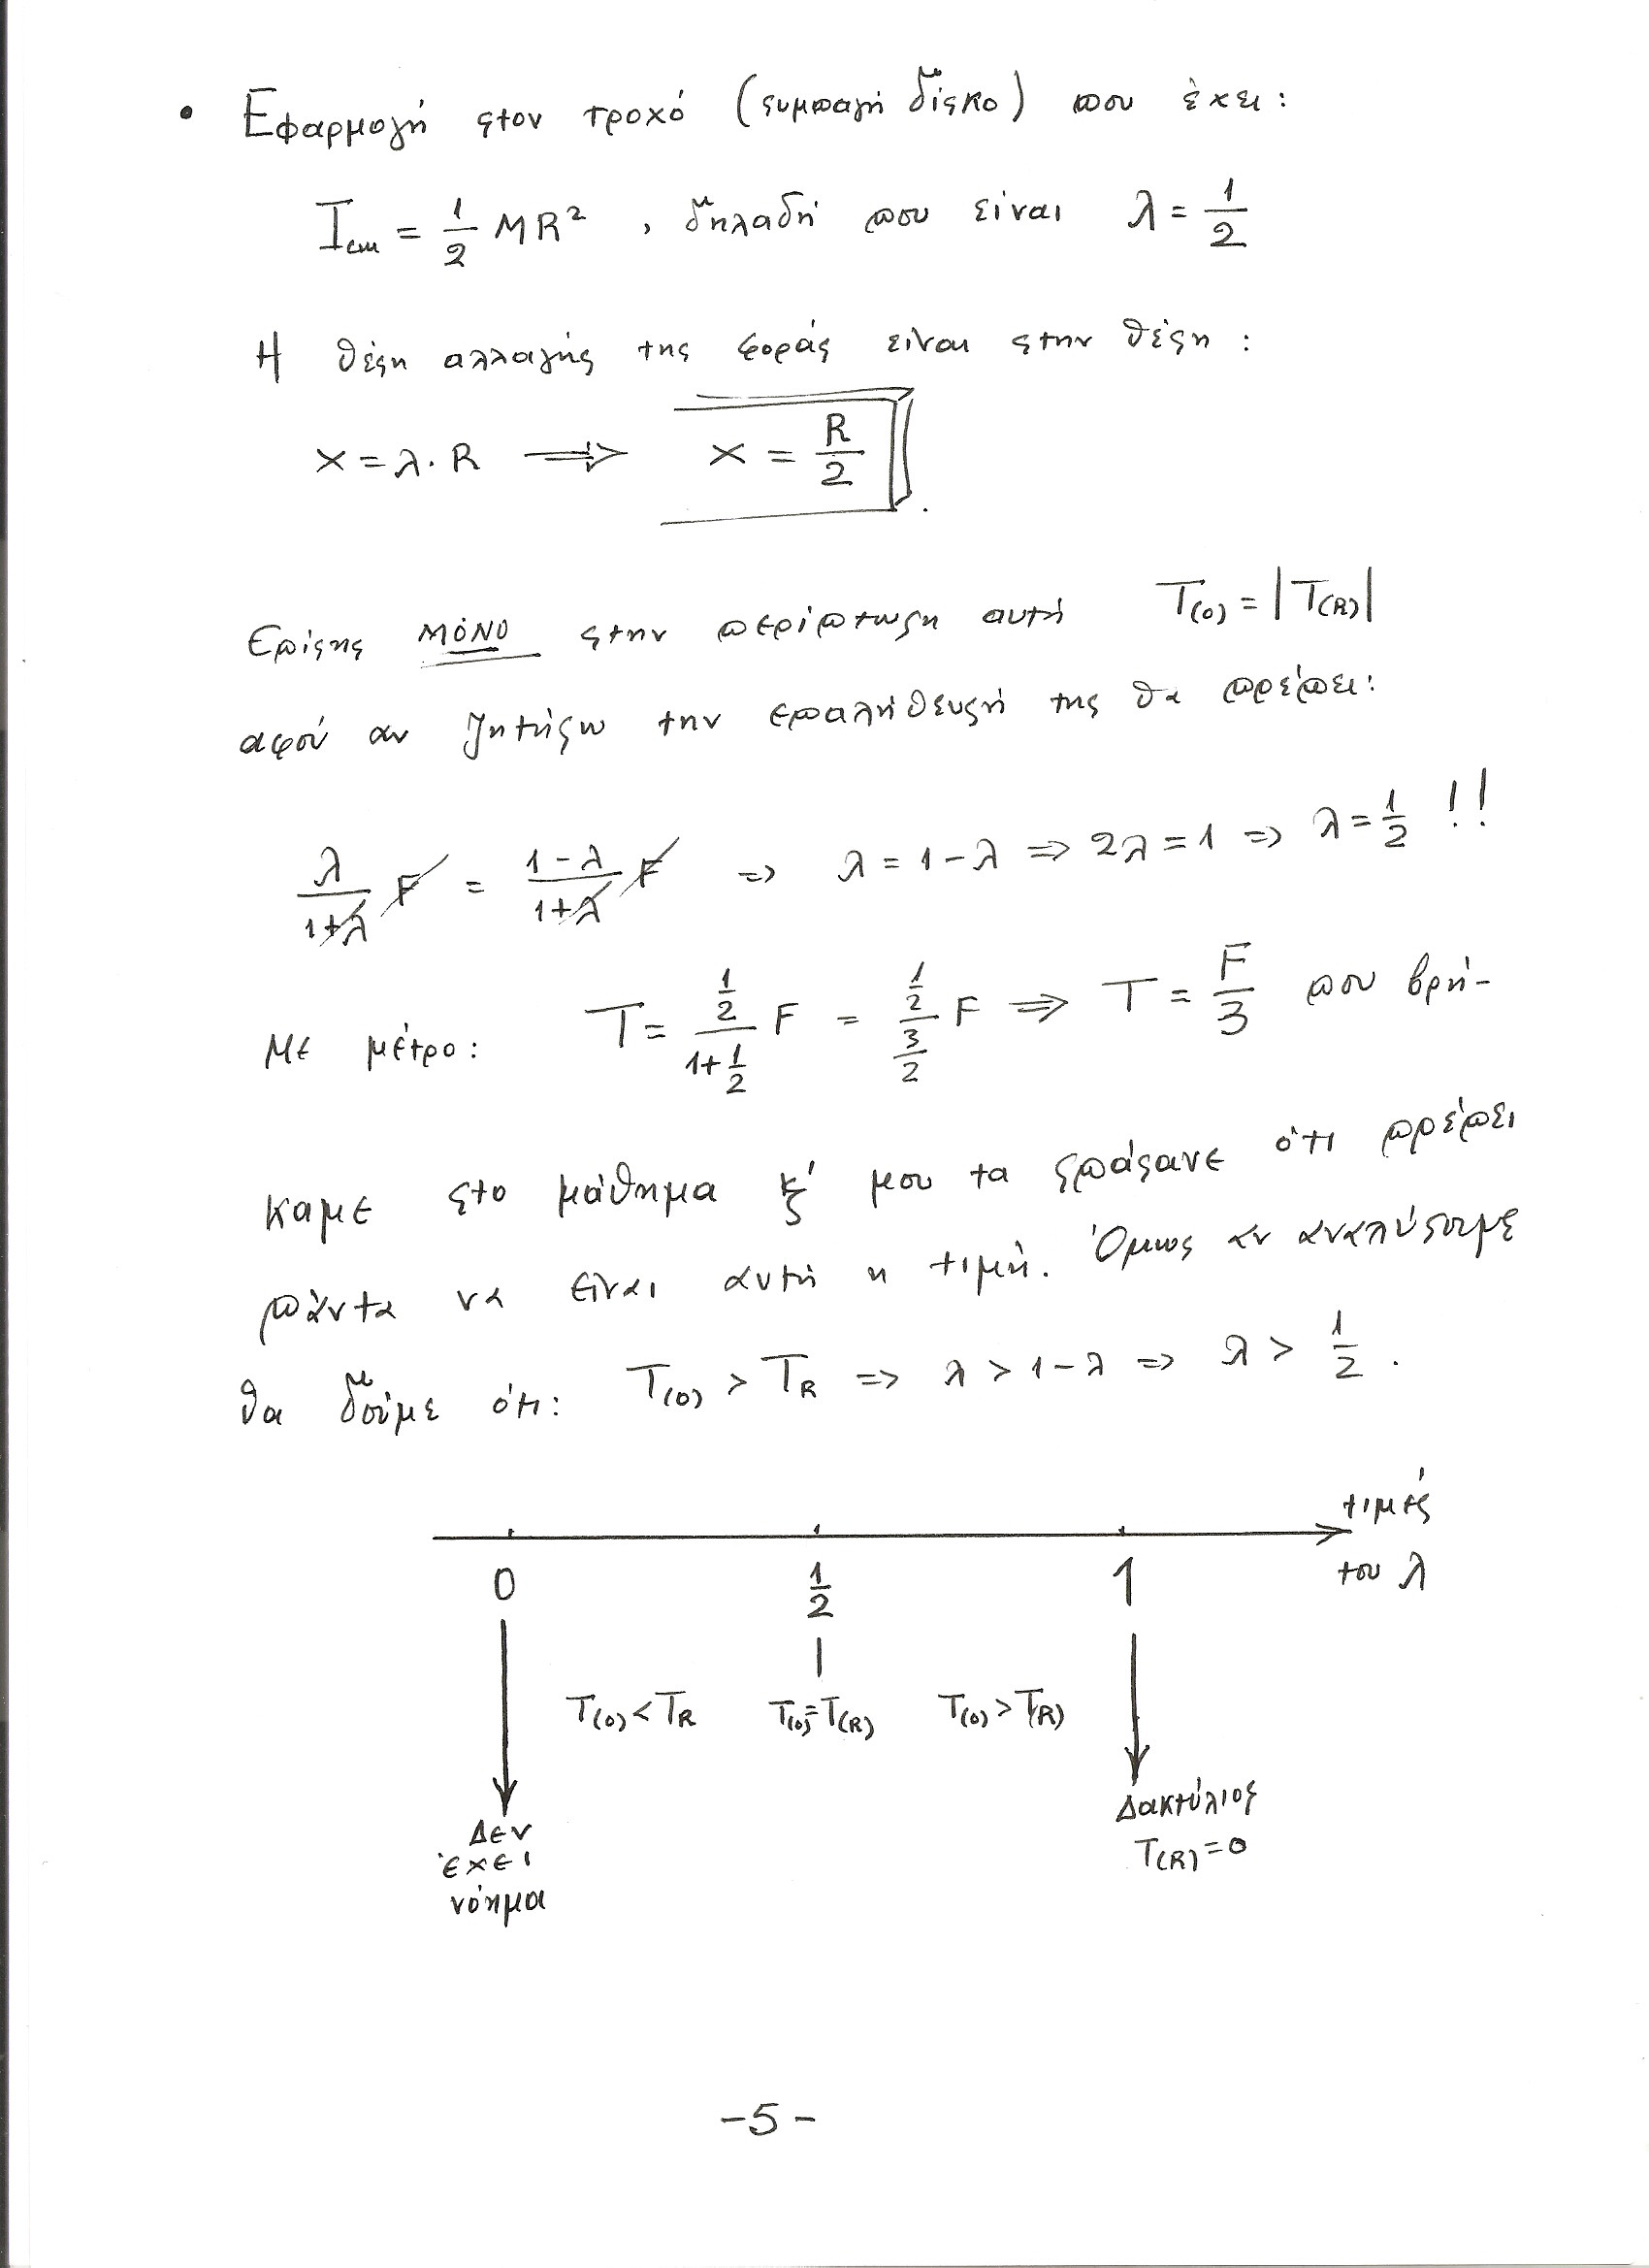 • Εφαρμογή στον τροχό (συμπαγή δίσκο) που έχει:
I_cm = 1/2 MR², δηλαδή που είναι λ = 1/2
Η θέση αλλαγής της φοράς είναι στην θέση:
x = λ·R ⟹ x = R/2.
Επίσης ΜΟΝΟ στην περίπτωση αυτή T(0) = |T(R)|
αφού αν ζητήσω την επαλήθευσή της θα πρέπει:
λ/(1+λ) F = (1-λ)/(1+λ) F ⇒ λ = 1-λ ⇒ 2λ = 1 ⇒ λ = 1/2 !!
Με μέτρο: T = (1/2)/(1+1/2) F = (1/2)/(3/2) F ⇒ T = F/3 που βρή-
καμε στο μάθημα κ' μου τα σπάσανε ότι πρέπει
πάντα να είναι αυτή η τιμή. Όμως αν αναλύσουμε
θα δούμε ότι: T(0) > T_R ⇒ λ > 1-λ ⇒ λ > 1/2.
τιμές
0 1/2 1 του λ
T(0) < T_R T(0) = T(R) T(0) > T(R)
Δεν
έχει
νόημα
Δακτύλιος
T(R) = 0
-5-